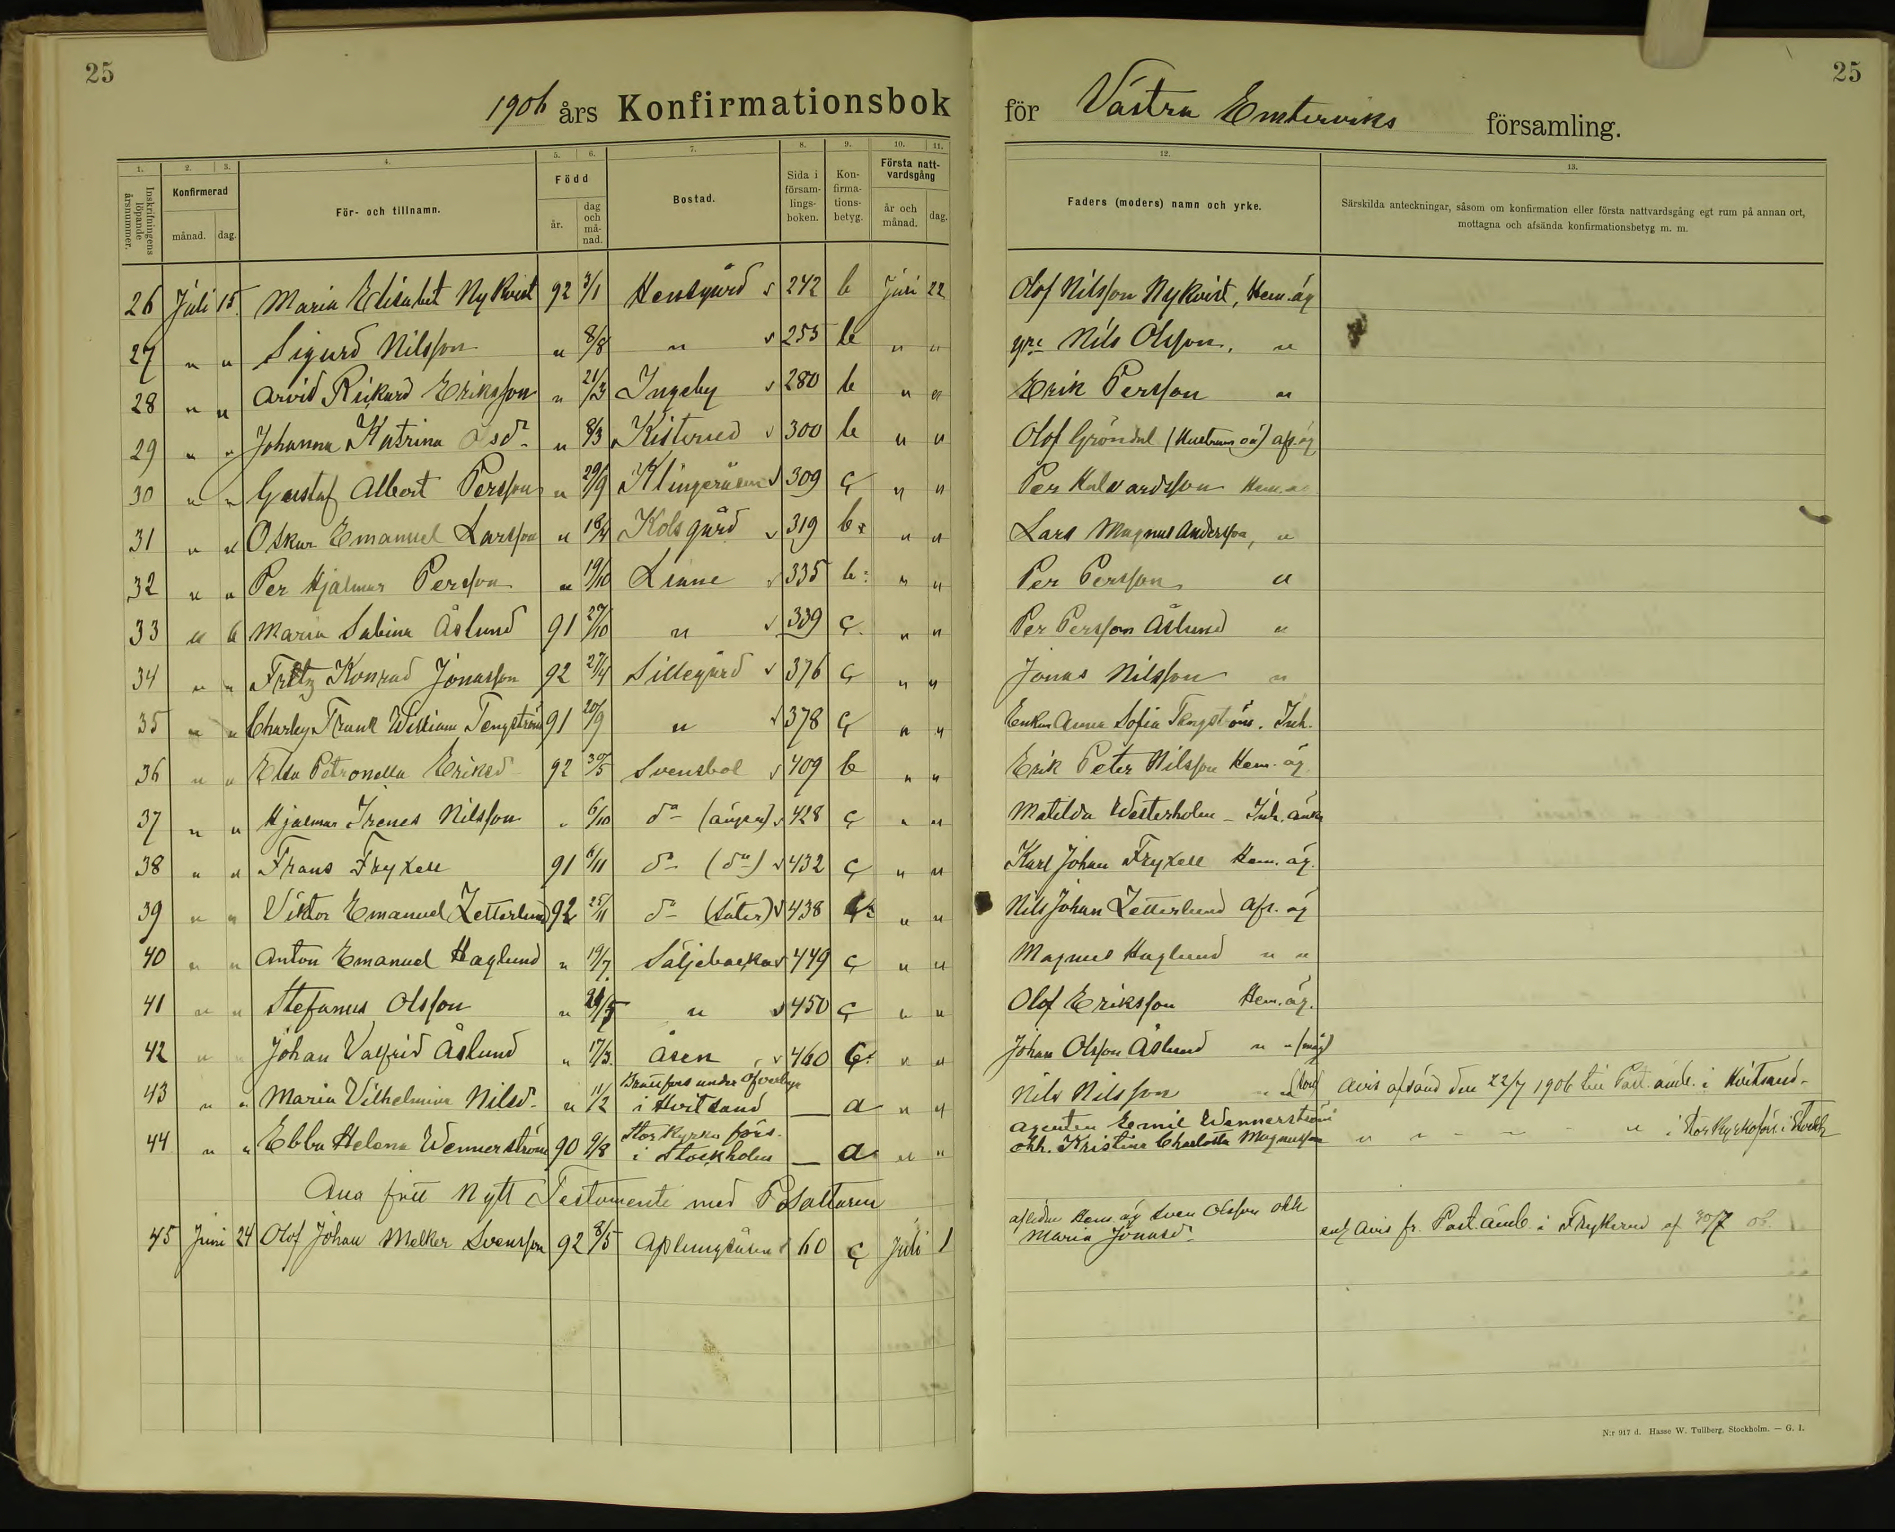 25
1906 års Konfirmationsbok
för Västra Emterviks församling.
25
1. 2. 3. 4. 5. 6. 7. 8. 9. 10. 11. 12. 13.
Inskrifningens löpande årsnummer. Konfirmerad månad. dag. För- och tillnamn. Född år. dag och månad. Bostad. Sida i försam-lings-boken. Kon-firma-tions-betyg. Första natt-vardsgång år och månad. dag.
Faders (moders) namn och yrke. Särskilda anteckningar, såsom om konfirmation eller första nattvardsgång egt rum på annan ort, mottagna och afsända konfirmationsbetyg m. m.
26 Juli 15. Maria Elisabet Nykvist 92 3/1 Hensgård 242 b Juli 22 Olof Nilsson Nykvist, Hem. äg
27 " " Sigurd Nilsson " 8/8 " 255 b " " yre Nils Olsson, "
28 " " Arvid Rikard Eriksson " 21/3 Ingeby 280 b " " Erik Persson "
29 " " Johanna Katrina " 8/3 Kisterud 300 b " " Olof Gröndal
30 " " Gustaf Albert Persson " 29/9 Klingeråsen 309 c " " Per Halvardsson Hem. äg
31 " " Oskar Emanuel Larsson " Kolsgård 319 b " " Lars Magnus Andersson, "
32 " " Per Hjalmar Persson " 19/10 Linne 335 b " " Per Persson "
33 " " Maria Sabina Åslund 91 27/10 " 339 c " " Per Persson Åslund "
34 " " Fritz Konrad Jonasson 92 27/4 Sillegård 376 c " " Jonas Nilsson "
35 " " Charley Frank William Tengström 91 20/9 " 378 c " " Enkan Anna Sofia Tengström. Inh.
36 " " Elsa Petronella Eriksd 92 30/5 Svensbol 409 b " " Erik Peter Nilsson Hem. äg.
37 " " Hjalmar Irenes Nilsson " 6/10 do 428 c " " Matilda Westerholm - Inh. änka
38 " " Frans Fryxell 91 6/11 do (do) 432 c " " Karl Johan Fryxell Hem. äg.
39 " " Viktor Emanuel Zetterlund 92 25/11 do (Säter) 438 " " Nils Johan Zetterlund Afs. äg
40 " " Anton Emanuel Haglund " 19/7 Säljebacka 449 c " " Magnus Haglund " "
41 " " Stefanus Olsson " " 450 c " " Olof Eriksson Hem. äg.
42 " " Johan Valfrid Åslund " 17/3 Åsen 460 " " Johan Olsson Åslund " "
43 " " Maria Vilhelmina Nilsd. " 11/2 i Hvitsand — a " " Nils Nilsson Avis afsänd den 22/7 1906 till Past. emb. i Hvitsand.
44 " " Ebba Helena Wennerström 90 9/8 Storkyrko förs. i Stockholm — a " " agenten Emil Wennerström
och h. Kristina Charlotta Magnusson " " i Storkyrkoförs. i Stockh
fått Nytt Testamente med Psaltaren
45 Juni 24 Olof Johan Melker Svensson 92 8/5 Aplungsåsen 60 c Juli 1 aflidne Hem. äg Sven Olsson och h
Maria Jonasd. enl. avis fr. Past. Emb. i Frykerud af 30/7 06.
N:r 917 d. Hasse W. Tullberg, Stockholm. — G. I.